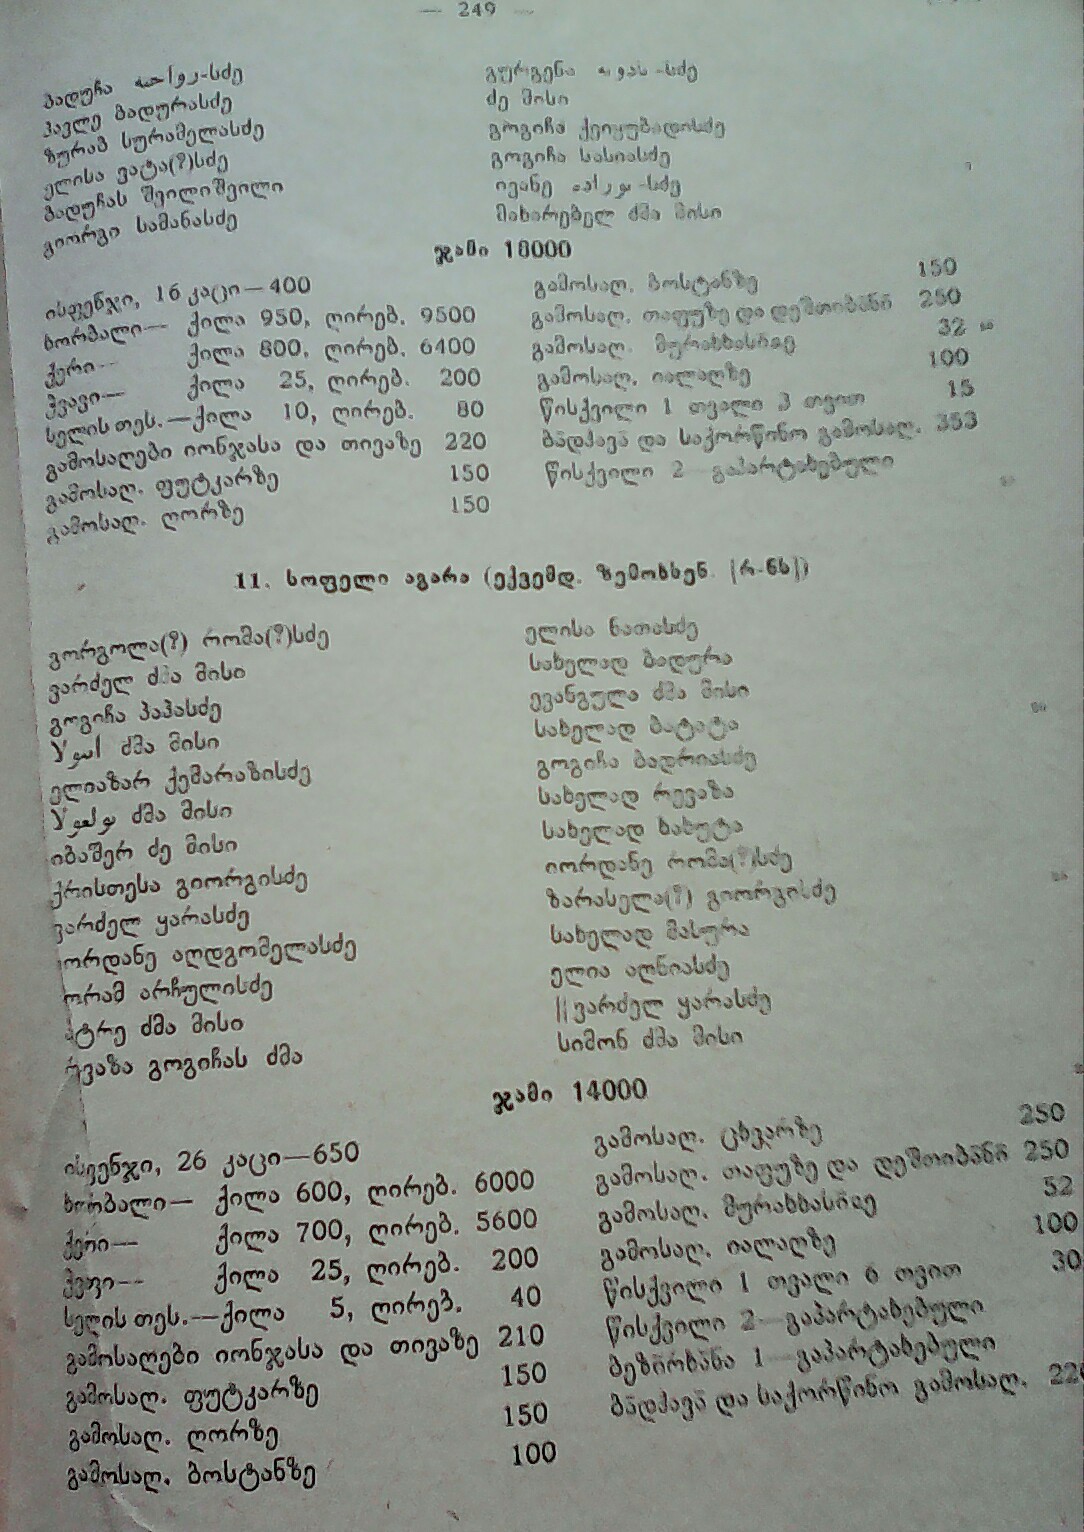 — 249 —
ბადუჩა -სძე
პავლე ბადურასძე
ზურაბ სურამელასძე
ელისა ვატა(?)სძე
ბადუჩას შვილიშვილი
გიორგი სამანასძე
გურგენა -სძე
ძე მისი
გოგიჩა ქეიყუბადისძე
გოგიჩა სასიასძე
ივანე -სძე
მახარებელ ძმა მისი
ჯამი 18000
ისფენჯი, 16 კაცი—400
ხორბალი— ქილა 950, ღირებ. 9500
ქერი— ქილა 800, ღირებ. 6400
ჭვავი— ქილა 25, ღირებ. 200
სელის თეს.—ქილა 10, ღირებ. 80
გამოსაღები იონჯასა და თივაზე 220
გამოსაღ. ფუტკარზე 150
გამოსაღ. ღორზე 150
გამოსაღ. ბოსტანზე 150
გამოსაღ. თაფუზე და დეშთიბანი 250
გამოსაღ. 32
გამოსაღ. იალაღზე 100
წისქვილი 1 თვალი 3 თვით 15
ბადჰავა და საქორწინო გამოსაღ. 353
წისქვილი 2 გაპარტახებული
11. სოფელი აგარა (ექვემდ. ზემოხსენ. [რ-ნს])
გორგოლა(?) რომა(?)სძე
ვარძელ ძმა მისი
გოგიჩა პაპასძე
ძმა მისი
ელიაზარ ქემარაზისძე
ძმა მისი
იბაშერ ძე მისი
ქრისთესა გიორგისძე
ვარძელ ყარასძე
ორდანე აღდგომელასძე
რამ არჩულისძე
ტრე ძმა მისი
ევაზა გოგიჩას ძმა
ელისა ნათასძე
სახელად ბადურა
ევანგულა ძმა მისი
სახელად ბატატა
გოგიჩა ბადრიასძე
სახელად რევაზა
სახელად ხახუტა
იორდანე რომა(?)სძე
ზარასელა(?) გიორგისძე
სახელად მასურა
ელია აღნიასძე
||ვარძელ ყარასძე
სიმონ ძმა მისი
ჯამი 14000
ისფენჯი, 26 კაცი—650
ხორბალი— ქილა 600, ღირებ. 6000
ქერი— ქილა 700, ღირებ. 5600
ქილა 25, ღირებ. 200
სელის თეს.—ქილა 5, ღირებ. 40
გამოსაღები იონჯასა და თივაზე 210
გამოსაღ. ფუტკარზე 150
გამოსაღ. ღორზე 150
გამოსაღ. ბოსტანზე 100
გამოსაღ. ცხვარზე 250
გამოსაღ. თაფუზე და დეშთიბანი 250
გამოსაღ. 52
გამოსაღ. იალაღზე 100
წისქვილი 1 თვალი 6 თვით 30
წისქვილი 2 გაპარტახებული
ბეზირხანა 1 გაპარტახებული
ბადჰავა და საქორწინო გამოსაღ.